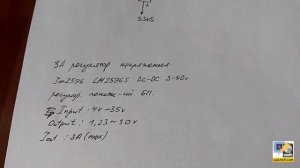 3.3V5
3А регулятор напряжения
lm2596 LM2596S DC-DC 3-40v
регулир. понижа-ий БП.
Input : 4v ~ 35v
Output : 1,23 ~ 30v
Iout : 3A (max)